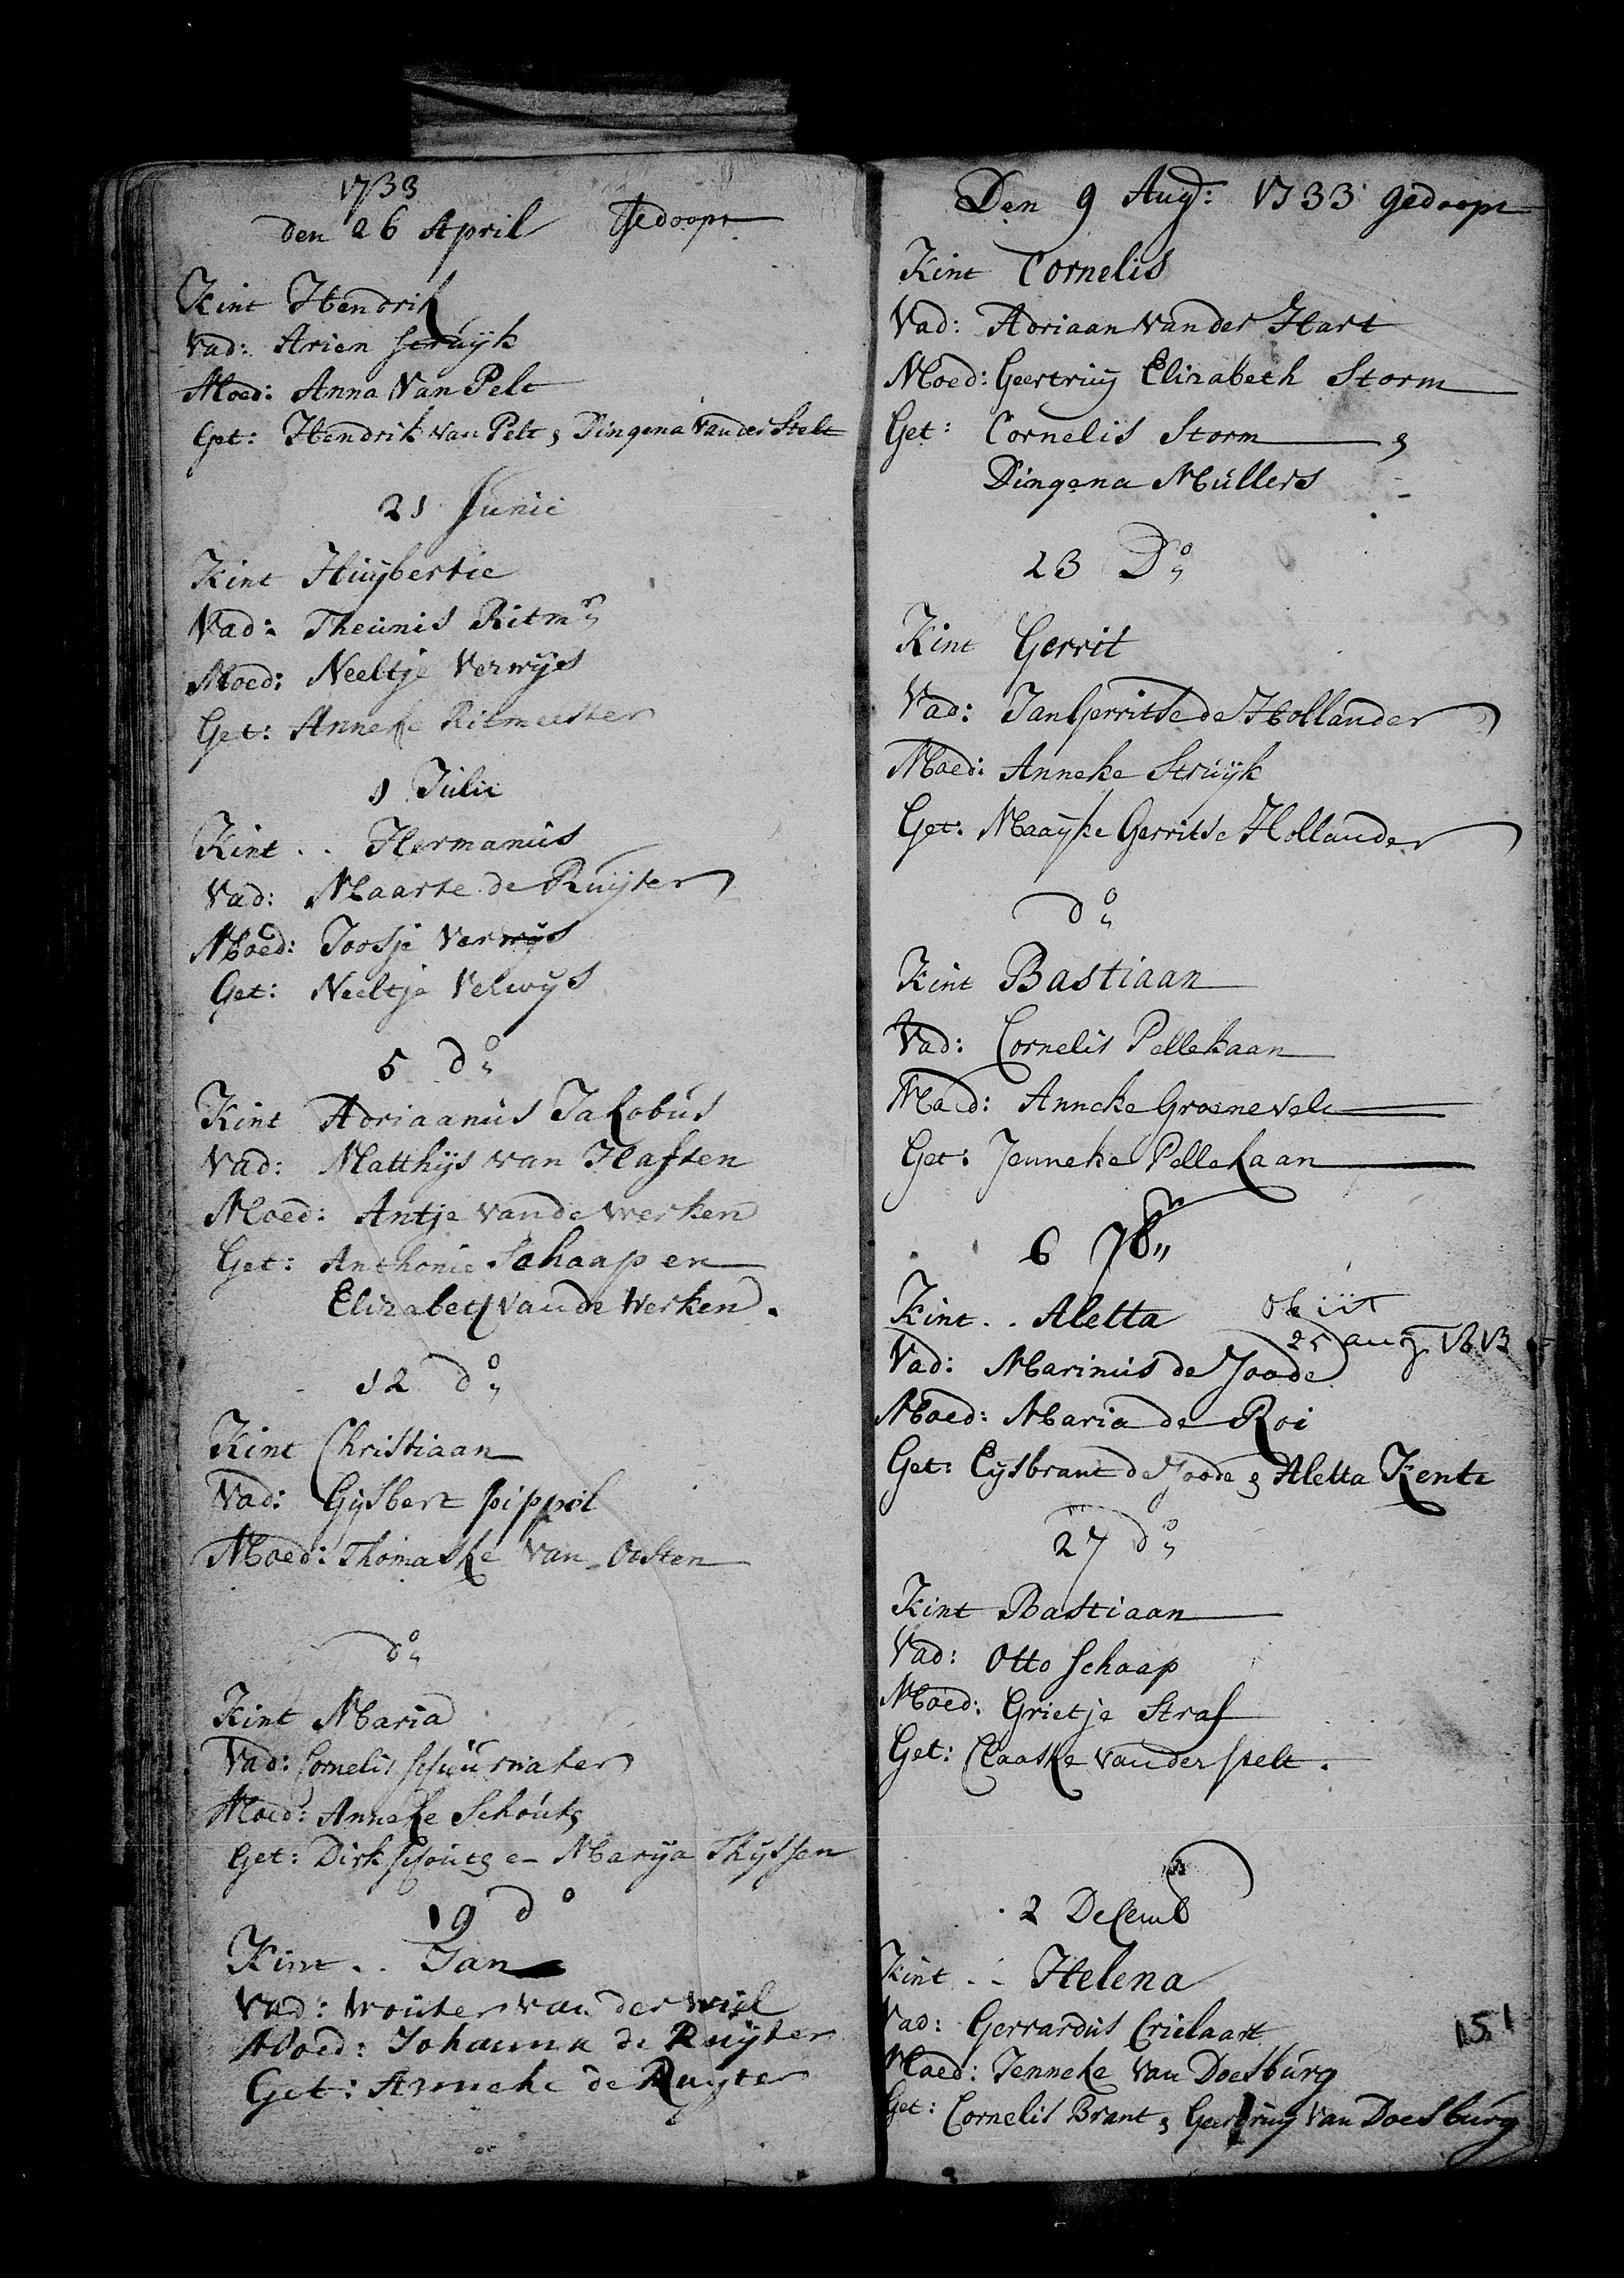 1733
den 26 April Gedoopt
Kint Hendrik
Vad: Arien Struijk
Moed: Anna Van Pelt
Get: Hendrik van Pelt, Dingena vander Stelt
21 Junii
Kint Huijbertie
Vad: Theunis Ritmr
Moed: Neeltje Verwijs
Get: Anneke Ritmeester
1 Julii
Kint .. Hermanus
Vad: Maarte de Ruijter
Moed: Joosje Verwijs
Get: Neeltje Verwijs
5 do
Kint Adriaanus Jakobus
Vad: Matthijs van Haften
Moed: Antje vande Werken
Get: Anthonie Schaap en
Elizabeth vande Werken.
12 do
Kint Christiaan
Vad: Gijsbert pippel
Moed: Thomaske van Oosten
do
Kint Maria
Vad: Cornelis Schuurmaker
Moed: Anneke Schouts
Get: Dirk Schouts en Marija Thijssen
19 do
Kint .. Jan
Vad: Wouter van der Wiel
Moed: Johanna de Ruijter
Get: Anneke de Ruyter
Den 9 Aug: 1733 gedoopt
Kint Cornelis
Vad: Adriaan van der Hart
Moed: Geertruij Elizabeth Storm
Get: Cornelis Storm ,
Dingena Mullers
23 Do
Kint Gerrit
Vad: Jan Gerritse de Hollander
Moed: Anneke Struijk
Get: Maaijke Gerritse Hollander
do
Kint Bastiaan
Vad: Cornelis Pellekaan
Moed: Anneke Groenevelt
Get: Jenneke Pellekaan
6 7br
Kint .. Aletta obiit
25 aug. 1813
Vad: Marinus de Joode
Moed: Maria de Roi
Get: Eijsbrant de Joode, Aletta Kente
27 do
Kint Bastiaan
Vad: Otto Schaap
Moed: Grietje Straf
Get: Claaske vander stelt.
2 Decemb
Kint .. Helena
Vad: Gerrardus Crielaart
Moed: Jenneke van Doesburg
Get: Cornelis Brant, Geertruij van Doesburg
151